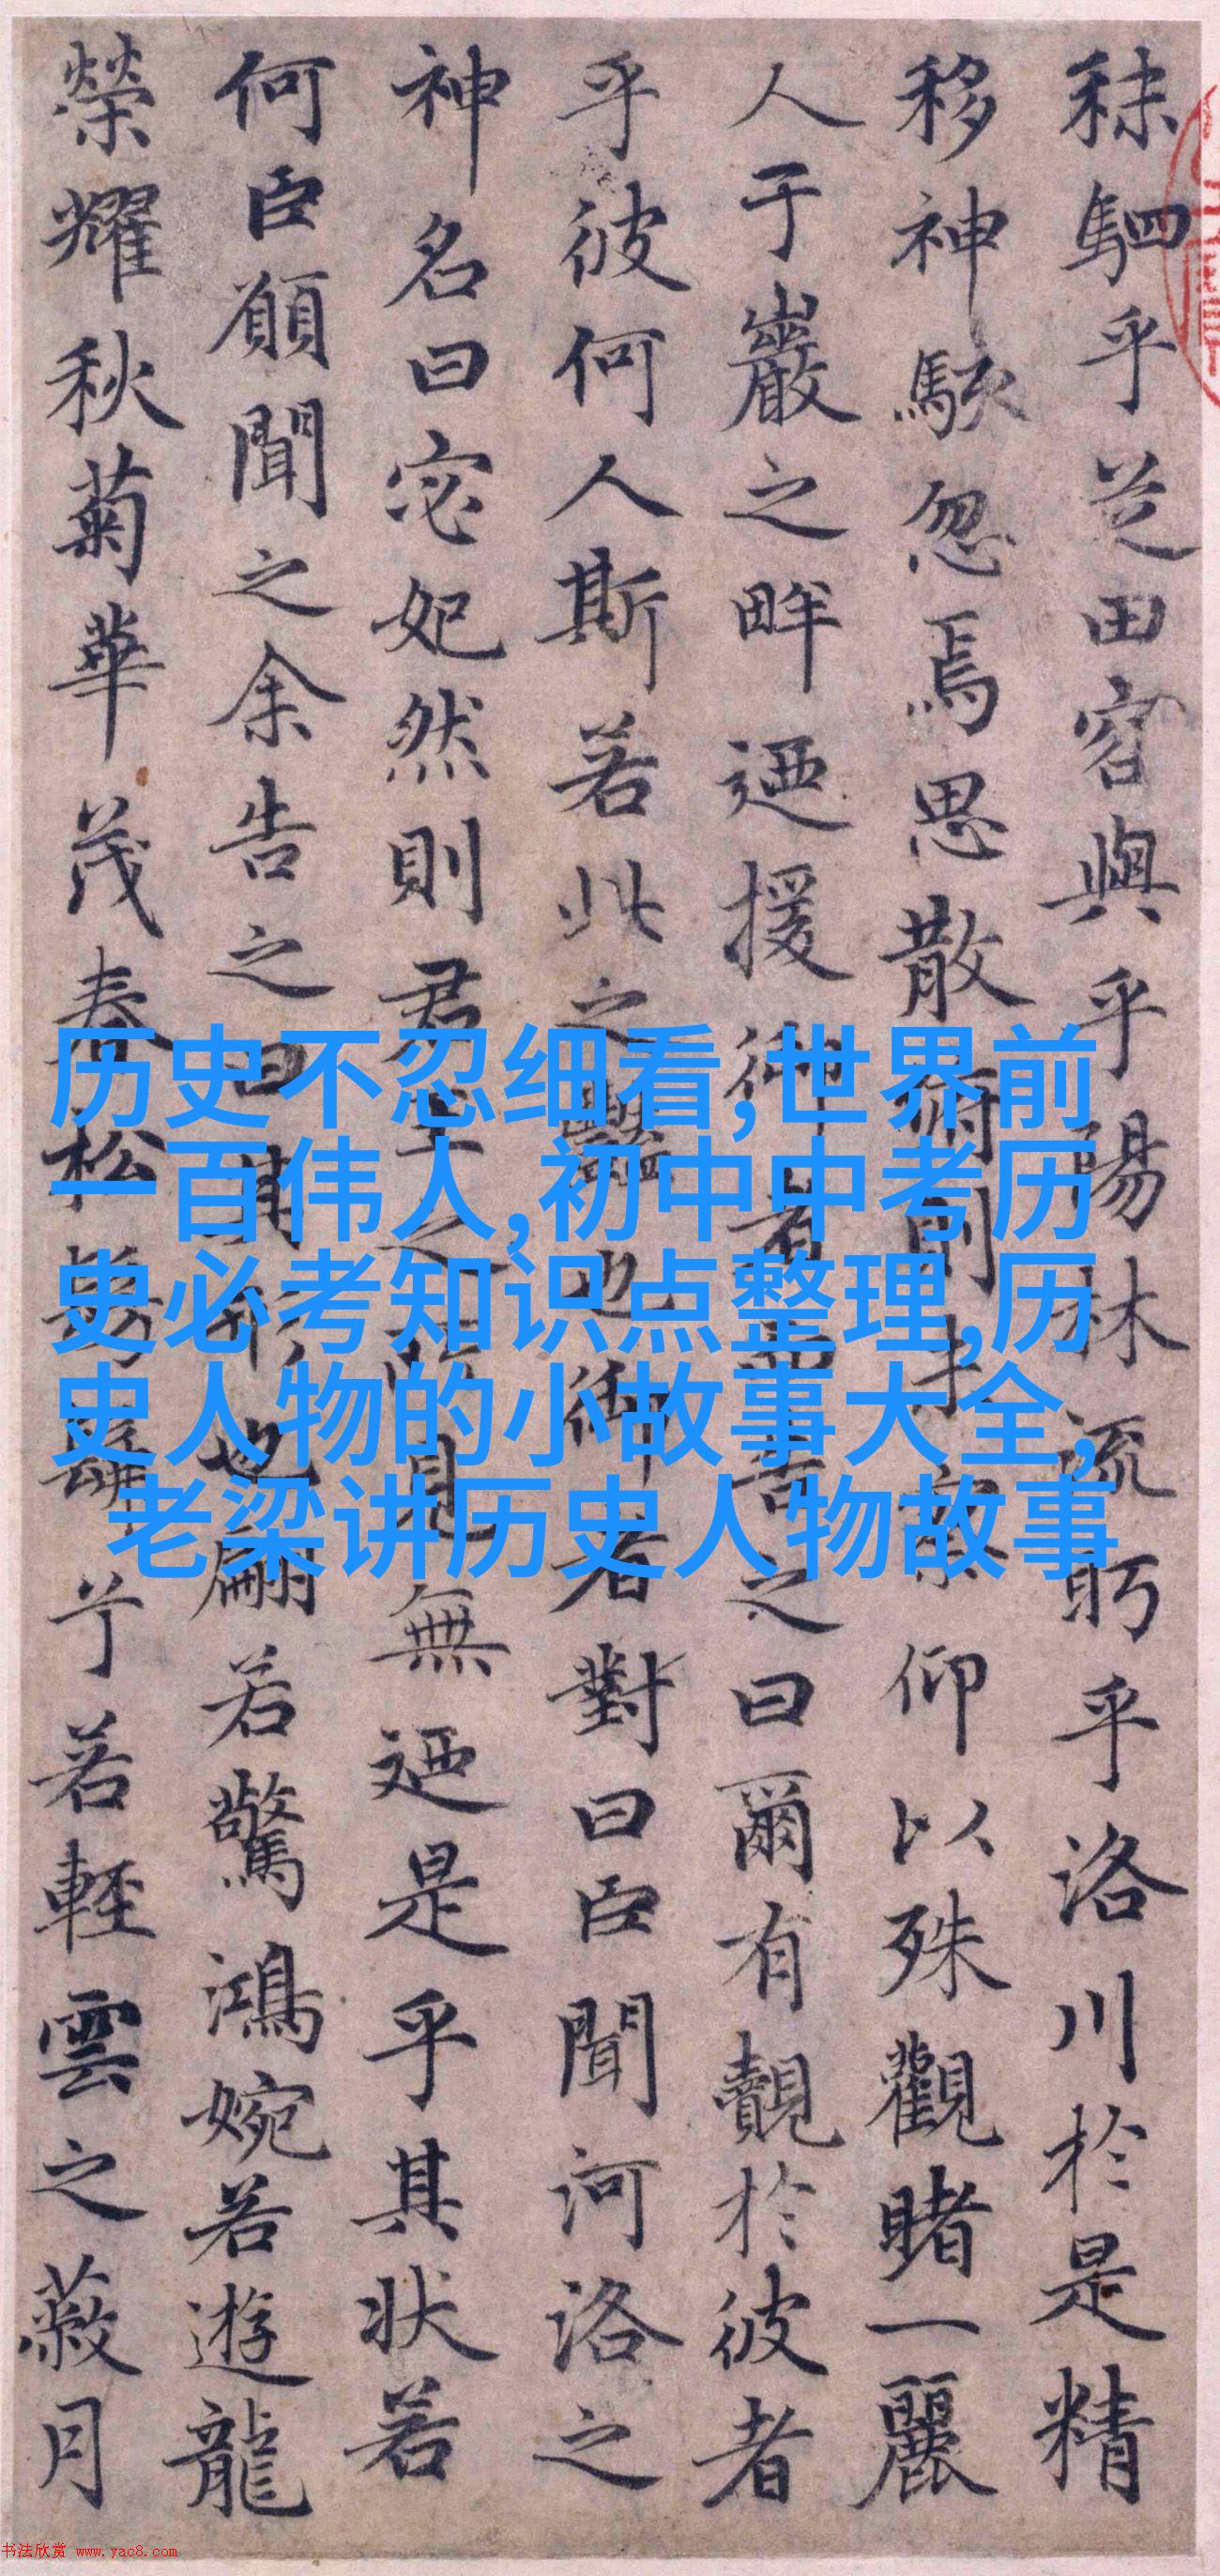 秣駟乎芝田容與乎陽林流眄乎洛川於是精
移神駭忽焉思散俯則未察仰以殊觀睹一麗
人于巖之畔迺援御者而告之曰爾有覿於彼者
乎彼何人斯若此之豔也御者對曰臣聞河洛之
神名曰宓妃然則君王之所見無迺是乎其狀若
何臣願聞之余告之曰其形也翩若驚鴻婉若遊龍
榮耀秋菊華茂春松髣髴兮若輕雲之蔽月
历史不忍细看,世界前
一百伟人,初中中考历
史必考知识点整理,历
史人物的小故事大全,
老梁讲历史人物故事
书法欣赏 www.yac8.com